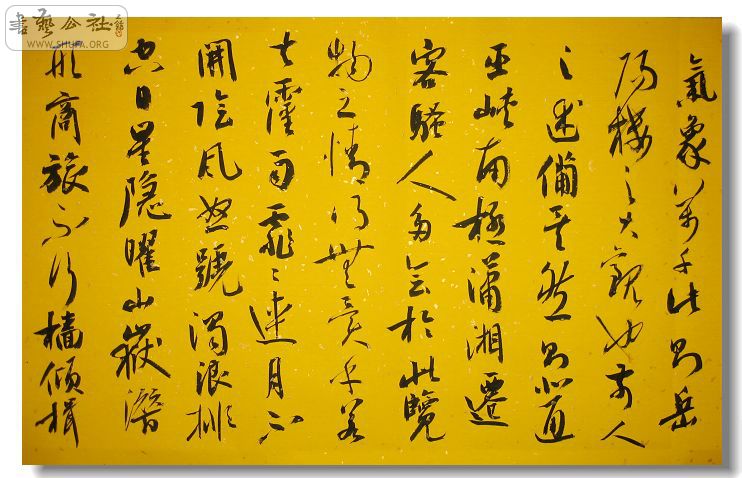 氣象萬千此則岳
陽樓之大觀也前人
之述備矣然則北通
巫峽南極瀟湘遷
客騷人多會於此覽
物之情得無異乎若
夫霪雨霏〻連月不
開陰風怒號濁浪排
空日星隱曜山嶽潛
形商旅不行檣傾楫
書藝公社
WWW.SHUFA.ORG